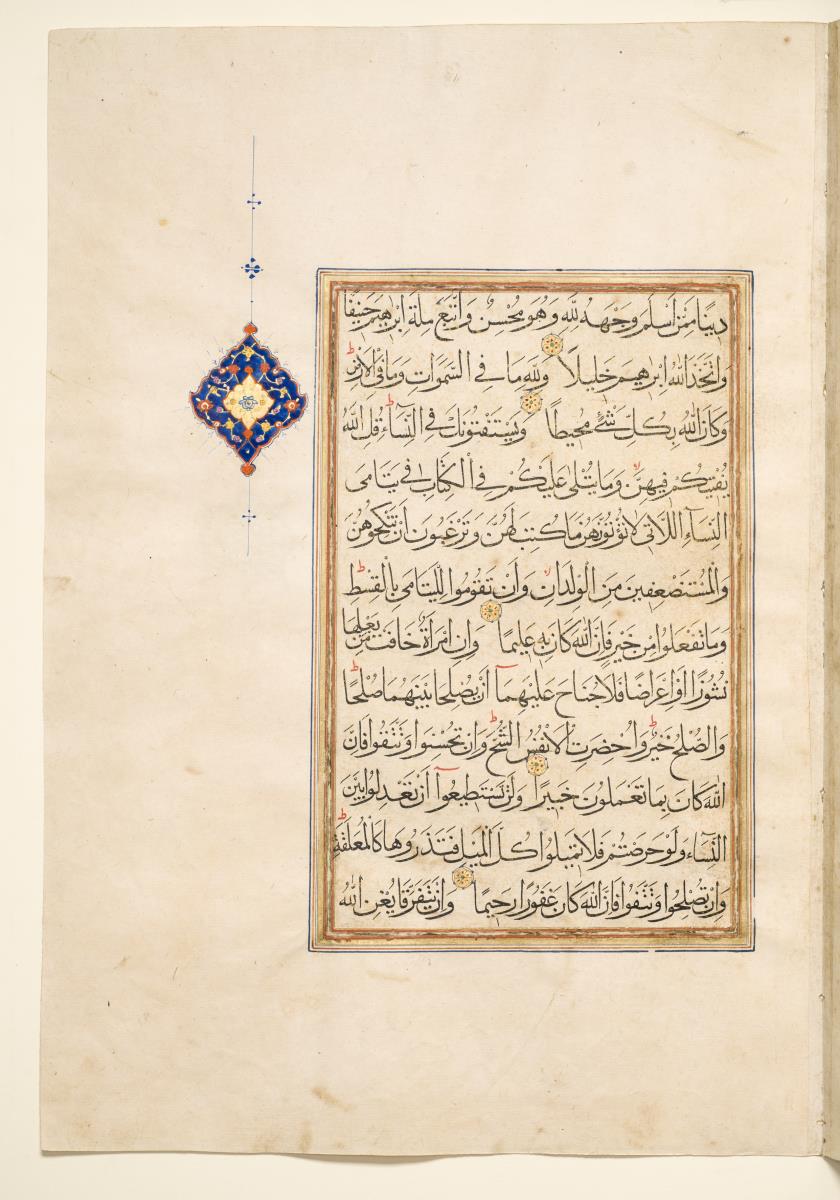 دِينًا مِمَّنْ أَسْلَمَ وَجْهَهُ لِلَّهِ وَهُوَ مُحْسِنٌ وَاتَّبَعَ مِلَّةَ اِبْرٰهِيمَ حَنِيفًا
وَاتَّخَذَ اللّٰهُ اِبْرٰهِيمَ خَلِيلًا وَلِلّٰهِ مَا فِي السَّمٰوَاتِ وَمَا فِي الْاَرْضِ
وَكَانَ اللّٰهُ بِكُلِّ شَيْءٍ مُحِيطًا وَيَسْتَفْتُونَكَ فِي النِّسَآءِ قُلِ اللّٰهُ
يُفْتِيكُمْ فِيهِنَّ وَمَا يُتْلٰى عَلَيْكُمْ فِي الْكِتَابِ فِي يَتَامَى
النِّسَآءِ اللَّاتِي لَا تُؤْتُونَهُنَّ مَا كُتِبَ لَهُنَّ وَتَرْغَبُونَ اَنْ تَنْكِحُوهُنَّ
وَالْمُسْتَضْعَفِينَ مِنَ الْوِلْدَانِ وَاَنْ تَقُومُوا لِلْيَتَامٰى بِالْقِسْطِ
وَمَا تَفْعَلُوا مِنْ خَيْرٍ فَاِنَّ اللّٰهَ كَانَ بِهِ عَلِيمًا وَاِنِ امْرَاَةٌ خَافَتْ مِنْ بَعْلِهَا
نُشُوزًا اَوْ اِعْرَاضًا فَلَا جُنَاحَ عَلَيْهِمَآ اَنْ يُصْلِحَا بَيْنَهُمَا صُلْحًا
وَالصُّلْحُ خَيْرٌ وَاُحْضِرَتِ الْاَنْفُسُ الشُّحَّ وَاِنْ تُحْسِنُوا وَتَتَّقُوا فَاِنَّ
اللّٰهَ كَانَ بِمَا تَعْمَلُونَ خَبِيرًا وَلَنْ تَسْتَطِيعُوٓا اَنْ تَعْدِلُوا بَيْنَ
النِّسَآءِ وَلَوْ حَرَصْتُمْ فَلَا تَمِيلُوا كُلَّ الْمَيْلِ فَتَذَرُوهَا كَالْمُعَلَّقَةِ
وَاِنْ تُصْلِحُوا وَتَتَّقُوا فَاِنَّ اللّٰهَ كَانَ غَفُورًا رَحِيمًا وَاِنْ يَتَفَرَّقَا يُغْنِ اللّٰهُ